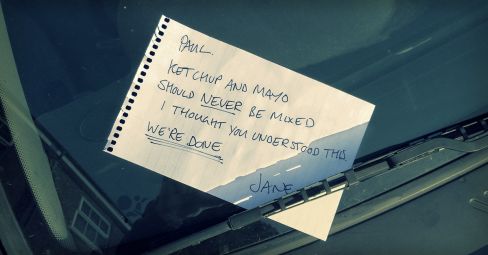 PAUL.
KETCHUP AND MAYO
SHOULD NEVER BE MIXED
I THOUGHT YOU UNDERSTOOD THIS.
WE'RE DONE
JANE